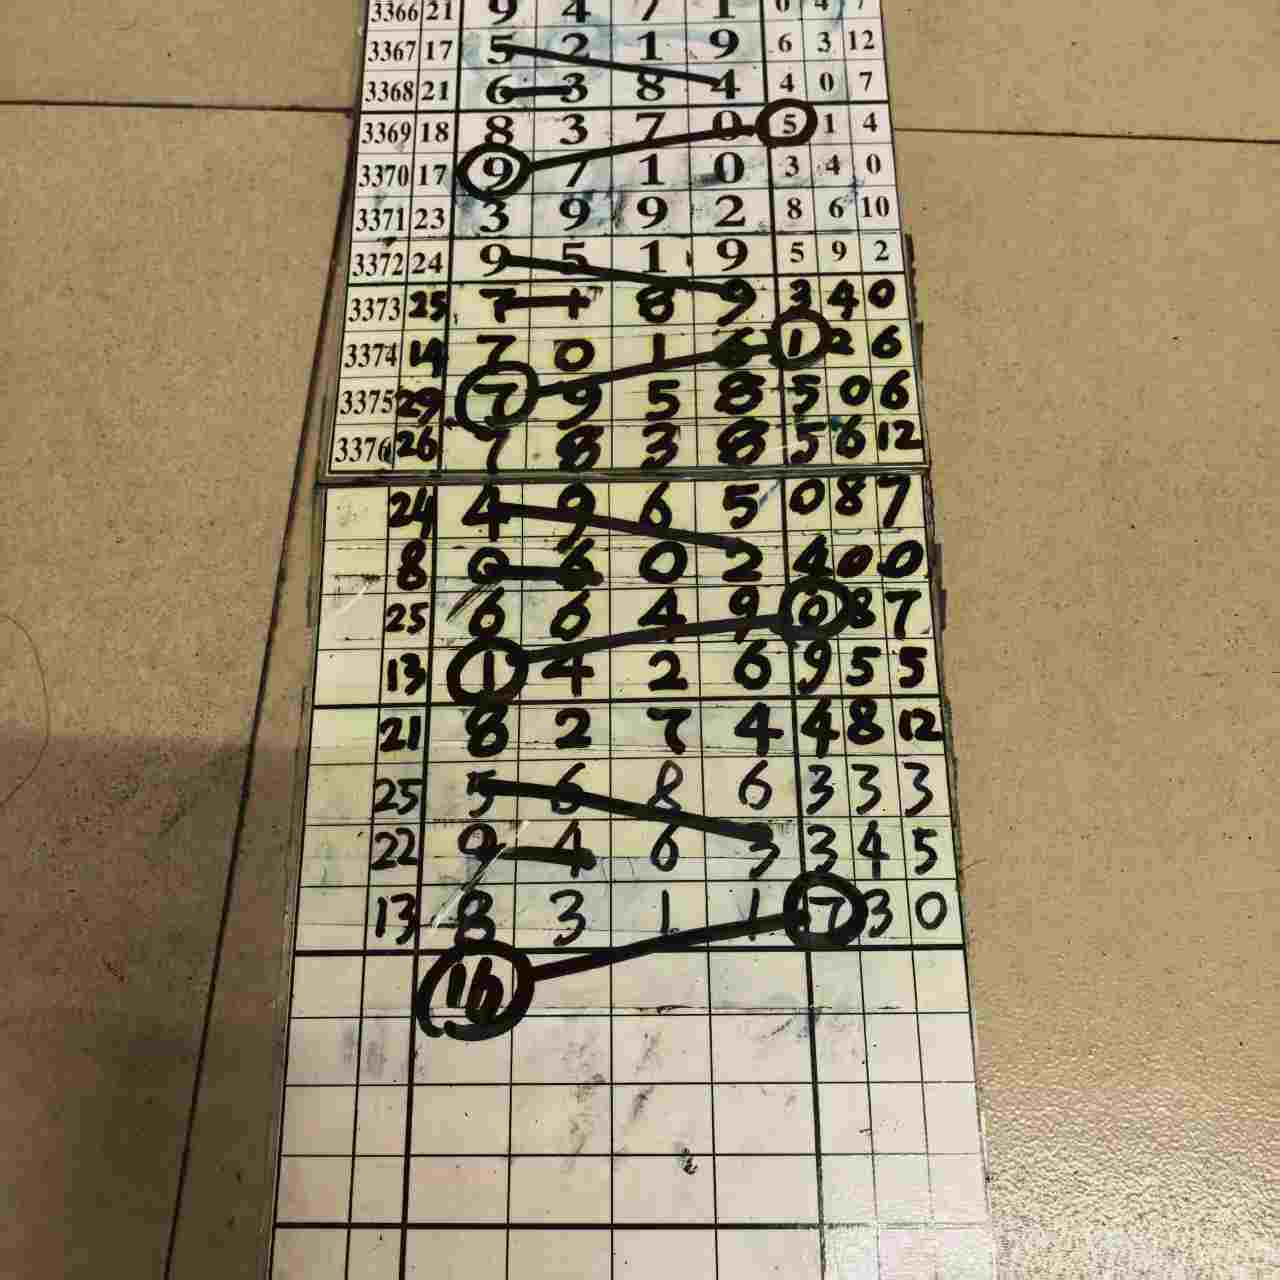 3366 21 9 4 7 1 0 4 7
3367 17 5 2 1 9 6 3 12
3368 21 6 3 8 4 4 0 7
3369 18 8 3 7 0 5 1 4
3370 17 9 7 1 0 3 4 0
3371 23 3 9 9 2 8 6 10
3372 24 9 5 1 9 5 9 2
3373 25 7 1 8 9 3 4 0
3374 14 7 0 1 6 1 2 6
3375 29 7 9 5 8 5 0 6
3376 26 7 8 3 8 5 6 12
24 4 9 6 5 0 8 7
8 0 6 0 2 4 0 0
25 6 6 4 9 0 8 7
13 1 4 2 6 9 5 5
21 8 2 7 4 4 8 12
25 5 6 8 6 3 3 3
22 9 4 6 3 3 4 5
13 8 3 1 1 7 3 0